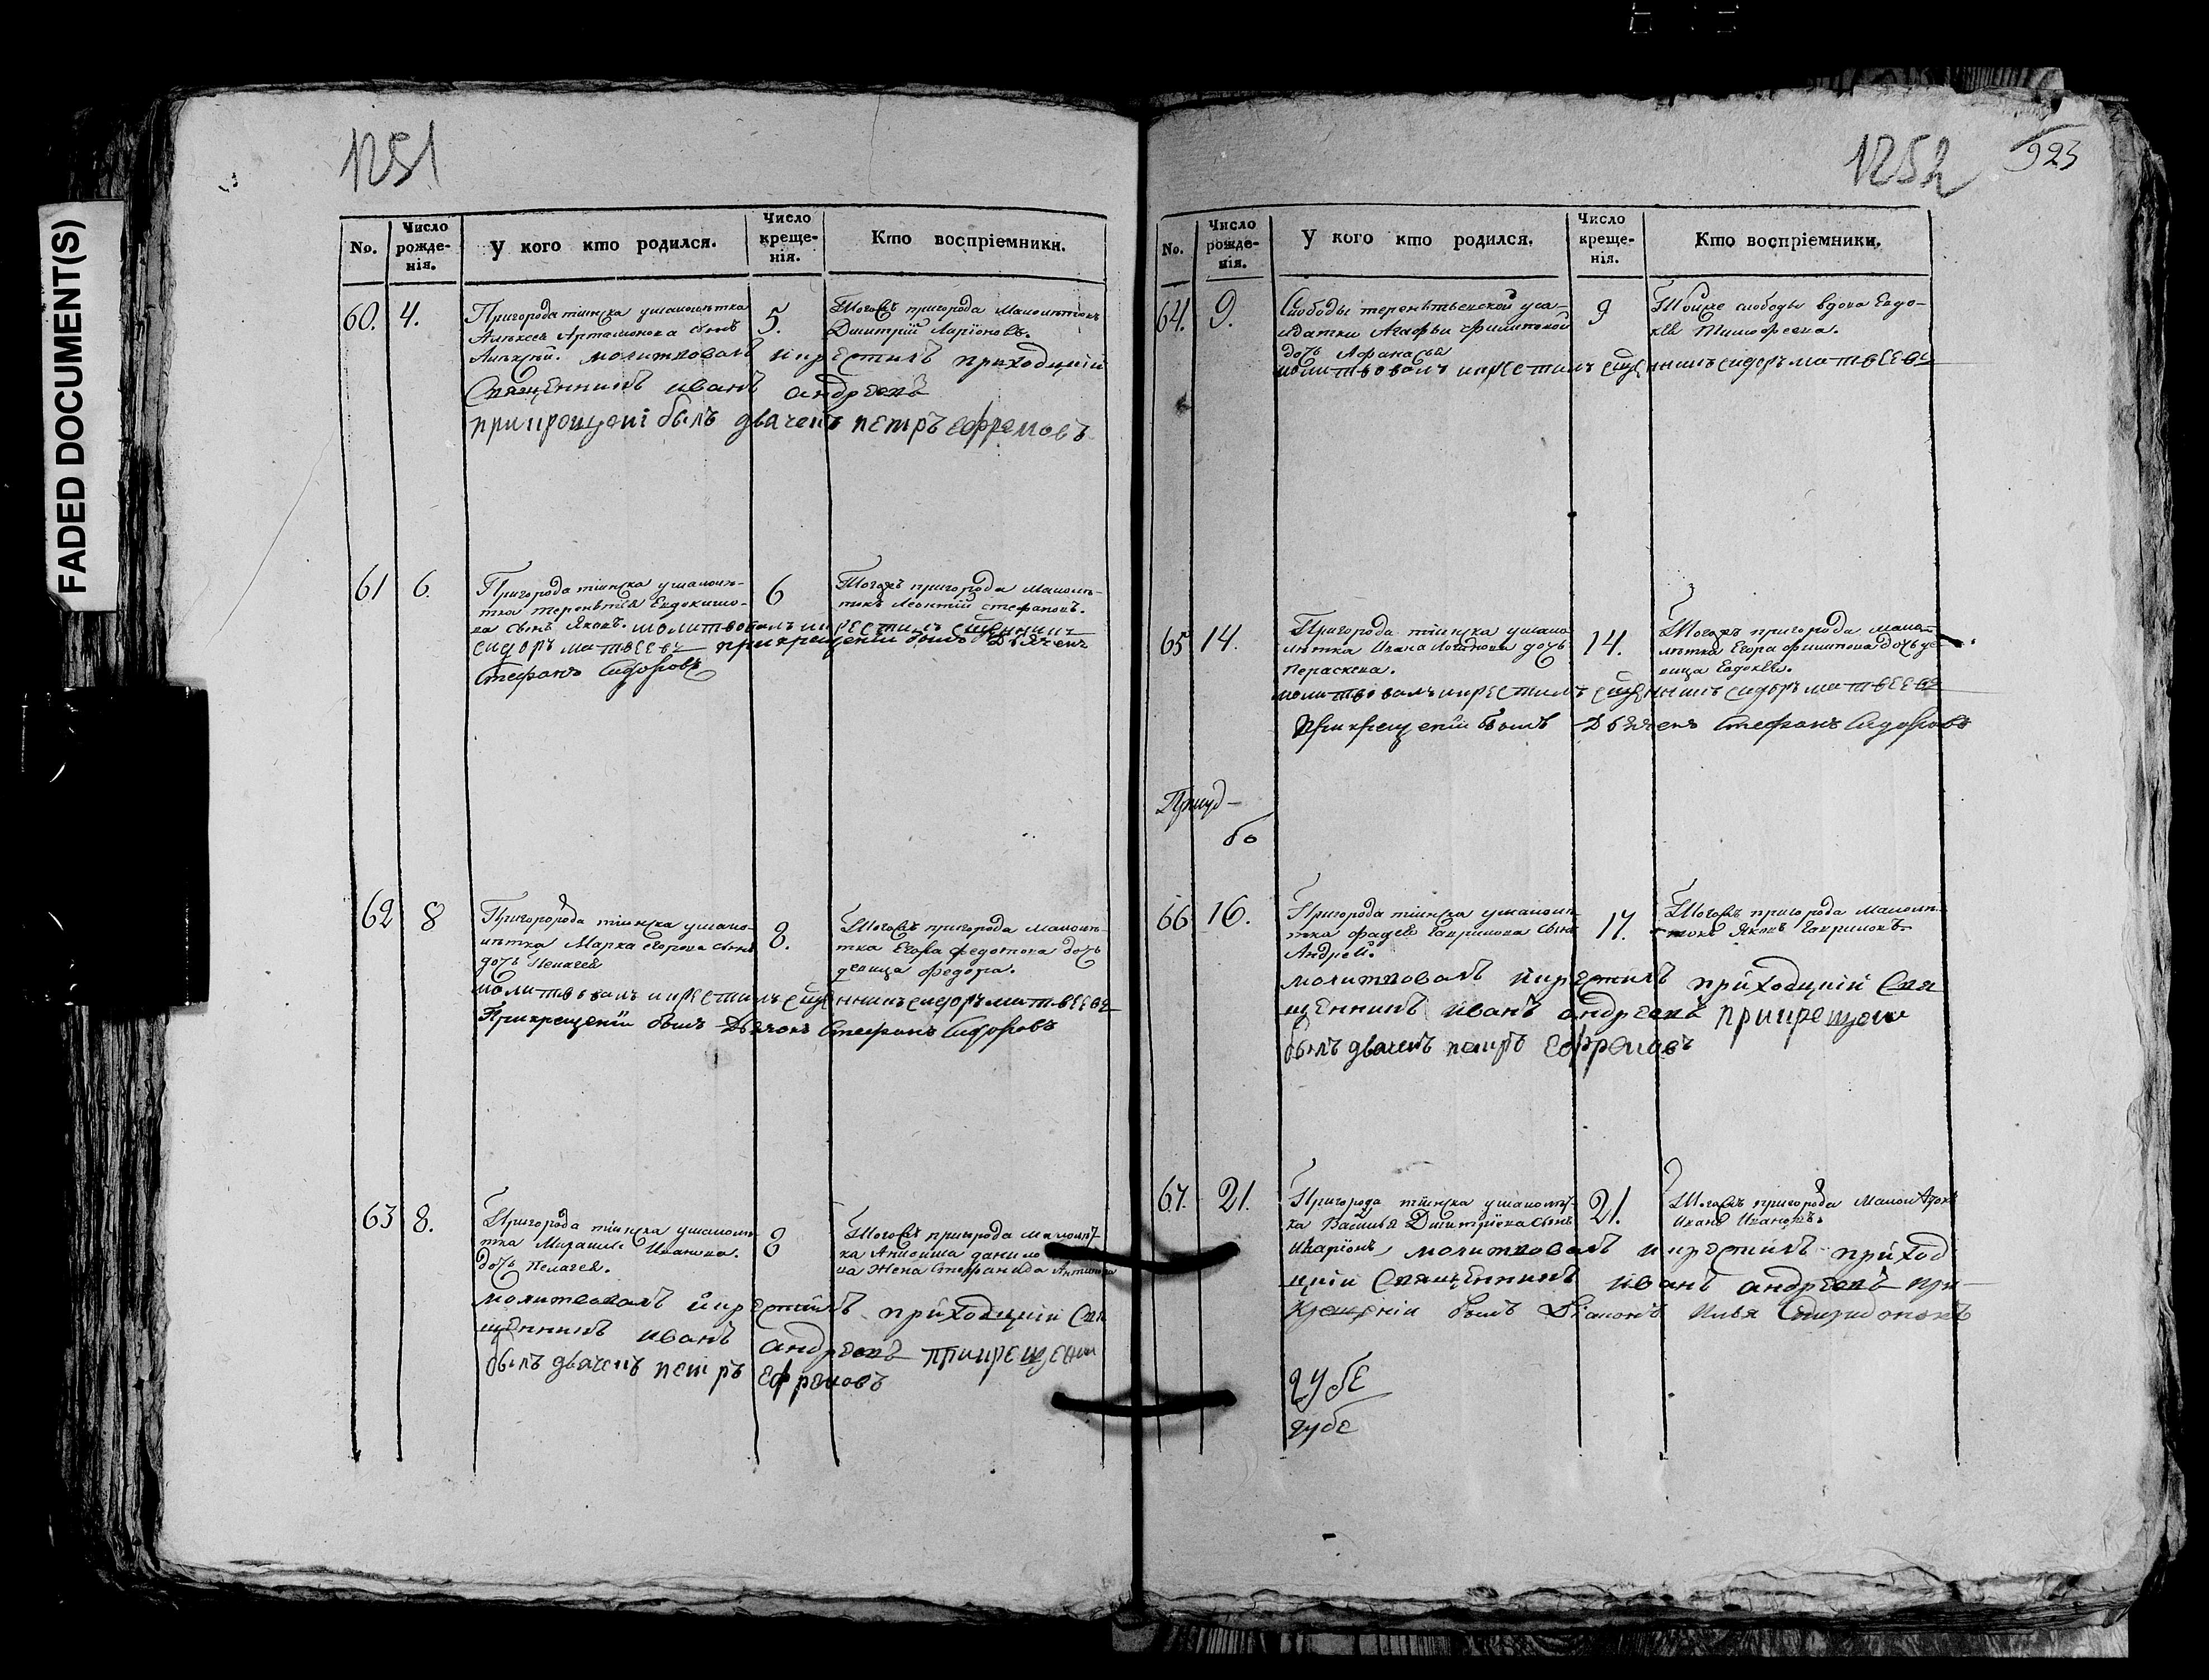 FADED DOCUMENT(S)
1251
No.
Число рожде-нія.
У кого кто родился.
Число креще-нія.
Кто воспріемники.
60. 4.
Пригорода тіинска умалолѣтка
Алексея Артамонова сынъ
Алексѣй. молитвовалъ и крестилъ приходцкій
Священникъ иванъ андреевъ
прикрещенi былъ дьячекъ петръ ефремовъ
5.
Тогожъ пригорода малолѣтокъ
Дмитрій Ларіоновъ.
61 6.
Пригорода тіинска умалолѣ-
тка терентія Евдокимо-
ва сынъ Яковъ. молитвовалъ и крестилъ священникъ
сидоръ матвеевъ прикрещеніи былъ дьячекъ
Стефанъ Сидоровъ
6
Тогожъ пригорода малолѣ-
токъ Леонтій стефановъ.
62 8
Пригорода тіинска умало-
лѣтка Марка егорова сынъ
дочь Пелагея
молитвовалъ и крестилъ священникъ сидоръ матвеевъ
Прикрещеніи былъ дьячокъ Стефанъ Сидоровъ
8.
Тогожъ пригорода малолѣ-
тка Егора федотова дочь
девица федора.
63 8.
Пригорода тіинска умалолѣ-
тка Иванова.
дочь Пелагея.
молитвовалъ и крестилъ приходцкій Свя
щенникъ иванъ андреевъ прикрещении
былъ дьячекъ петръ ефремовъ
8
Тогожъ пригорода малолѣт-
ка данило
ва жена Стефанида
1252
923
No.
Число рожде-нія.
У кого кто родился.
Число креще-нія.
Кто воспріемники.
64. 9.
Слободы терентьевской усо-
лдатки Агафьи филиповой
дочь Афанасья
молитвовалъ и крестилъ священникъ сидоръ матвеевъ
9
Тойже слободы вдова Евдо-
кѣя Тимофеева.
65 14.
Пригорода тіинска умало
лѣтка Ивана дочь
Пераскева.
молитвовалъ и крестилъ священникъ сидоръ матвеевъ
Прикрещеніи былъ дьячекъ Стефанъ Сидоровъ
14.
Тогожъ пригорода мало-
лѣтка Егора филипова дочь де-
вица Евдокѣя.
66 16.
Пригорода тіинска умалолѣ-
тка фадея Гаврилова сынъ
Андрей.
молитвовалъ и крестилъ приходцкій Свя
щенникъ иванъ андреевъ прикрещении
былъ дьячекъ петръ Ефремовъ
17.
Тогожъ пригорода малолѣ-
токъ Яковъ Гавриловъ.
67. 21.
Пригорода тіинска умалолѣт-
ка Василья Дмитріева сынъ
Иларіонъ молитвовалъ и крестилъ приход
цкій Священникъ иванъ андреевъ при
Крещеніи былъ Діаконъ Илья Спиридоновъ
21.
Тогожъ пригорода малолѣтокъ
Иванъ Ивановъ.